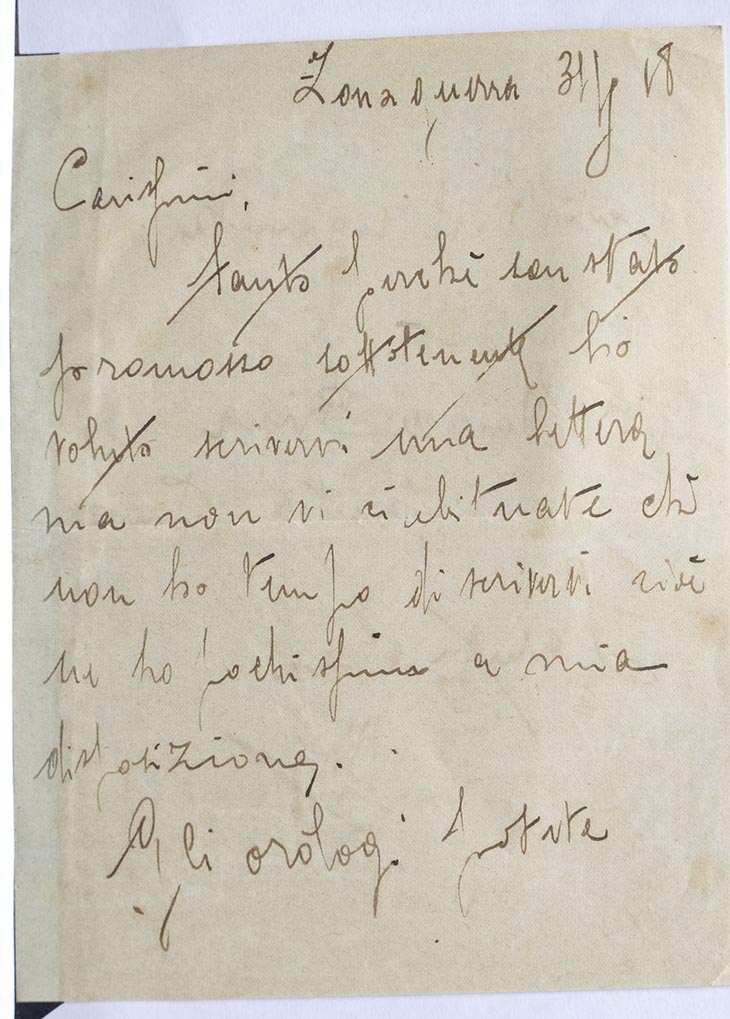 Zona guerra 31/ 18
Carissimi,
tanto perchè son stato
promosso sottotenente ho
voluto scrivervi una lettera
ma non vi ci abituate chè
non ho tempo di scrivervi cioè
ne ho pochissimo a mia
disposizione.
Gli orologi potete